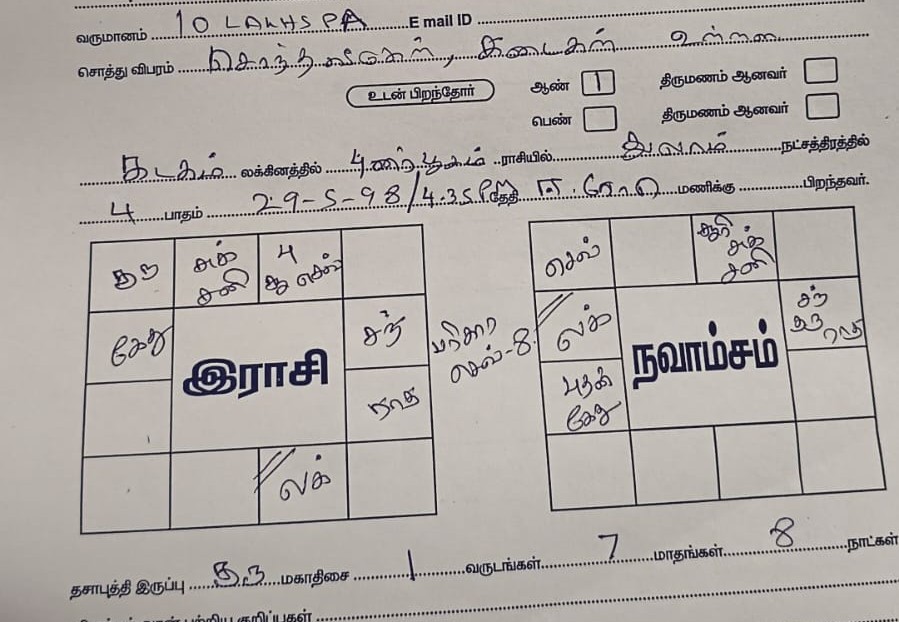 வருமானம் 10 LAKHS PA E mail ID
சொத்து விபரம் சொந்த வீடுகள், கடைகள் உள்ளன
உடன் பிறந்தோர் ஆண் 1 திருமணம் ஆனவர்
பெண் திருமணம் ஆனவர்
கடகம் லக்கினத்தில் 4 ராசியில் துலாம் நட்சத்திரத்தில்
4 பாதம் 29-5-98 / 4.35 PM தேதி மணிக்கு பிறந்தவர்.
குரு சுக் சனி 4 சூ செவ்
கேது சந்
இராசி
ராகு
லக்
பரிகார செவ்-8
செவ் சூரி சுக் சனி
லக் சந் குரு ராகு
நவாம்சம்
புதன் கேது
தசாபுத்தி இருப்பு குரு மகாதிசை 1 வருடங்கள் 7 மாதங்கள் 8 நாட்கள்